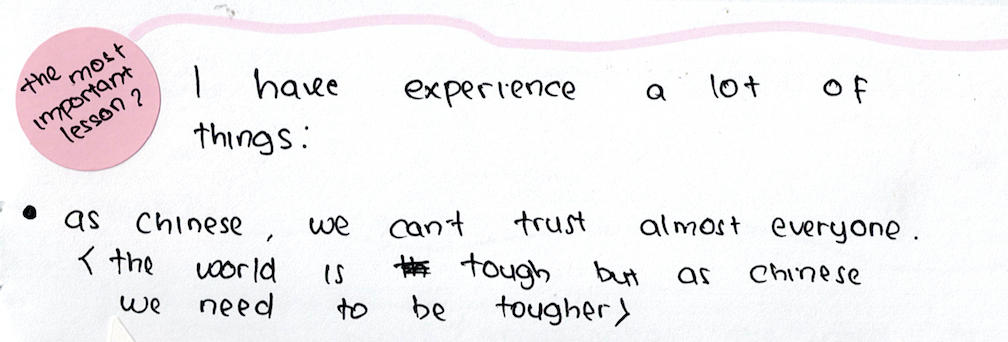 the most
important
lesson?
I have experience a lot of
things:
• as chinese, we can't trust almost everyone.
< the world is tough but as chinese
we need to be tougher >